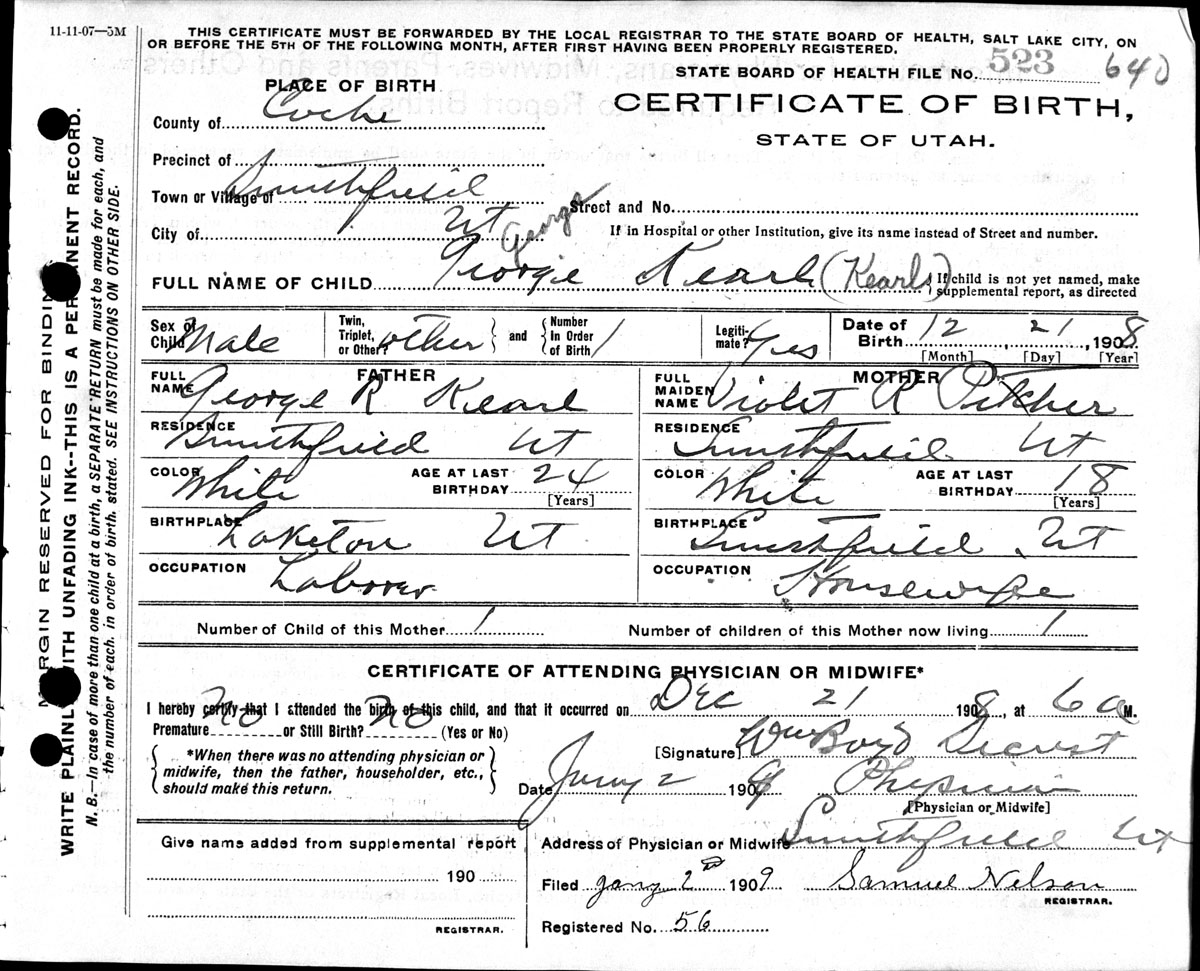 11-11-07—5M
THIS CERTIFICATE MUST BE FORWARDED BY THE LOCAL REGISTRAR TO THE STATE BOARD OF HEALTH, SALT LAKE CITY, ON
OR BEFORE THE 5TH OF THE FOLLOWING MONTH, AFTER FIRST HAVING BEEN PROPERLY REGISTERED.
STATE BOARD OF HEALTH FILE No. 523 640
PLACE OF BIRTH
CERTIFICATE OF BIRTH,
STATE OF UTAH.
County of Cache
Precinct of 1
Town or Village of Smithfield
Street and No.
City of Ut
If in Hospital or other Institution, give its name instead of Street and number.
George
FULL NAME OF CHILD Georgie Kearl (Kearls) If child is not yet named, make
supplemental report, as directed
Sex of Child Male
Twin, Triplet, or Other? other and Number In Order of Birth 1
Legitimate? Yes
Date of Birth 12 21 1908
[Month] [Day] [Year]
FATHER
FULL NAME George R Kearl
RESIDENCE Smithfield Ut
COLOR White AGE AT LAST BIRTHDAY 24
[Years]
BIRTHPLACE Laketon UT
OCCUPATION Laborer
MOTHER
FULL MAIDEN NAME Violet R Pitcher
RESIDENCE Smithfield Ut
COLOR White AGE AT LAST BIRTHDAY 18
[Years]
BIRTHPLACE Smithfield Ut
OCCUPATION Housewife
Number of Child of this Mother 1 Number of children of this Mother now living 1
CERTIFICATE OF ATTENDING PHYSICIAN OR MIDWIFE*
I hereby certify that I attended the birth of this child, and that it occurred on Dec 21 1908, at 6 a M.
Premature No or Still Birth? No (Yes or No)
*When there was no attending physician or
midwife, then the father, householder, etc.,
should make this return.
[Signature] Wm Boyd
Date Jany 2 1909 Physician
[Physician or Midwife]
Address of Physician or Midwife Smithfield Ut
Give name added from supplemental report
190
REGISTRAR.
Filed Jany 2nd 1909 Samuel Nelson
REGISTRAR.
Registered No. 56
MARGIN RESERVED FOR BINDING
WRITE PLAINLY WITH UNFADING INK--THIS IS A PERMANENT RECORD.
N. B.—In case of more than one child at a birth, a SEPARATE RETURN must be made for each, and
the number of each, in order of birth, stated. SEE INSTRUCTIONS ON OTHER SIDE.